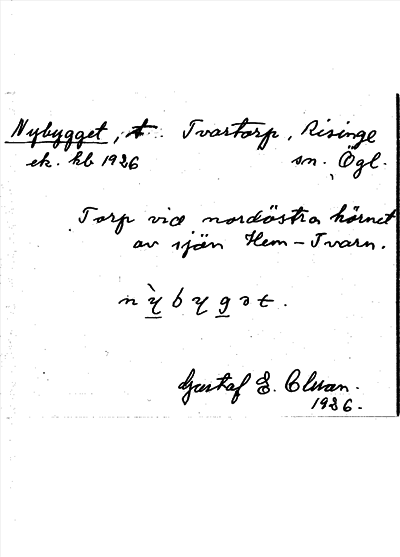 Nybygget, t. Tvartorp, Risinge
ek. kb 1926 sn. Ögl.
Torp vid nordöstra hörnet
av sjön Hem-Tvarn.
nỳbygət.
Gustaf E. Olsson.
1926.